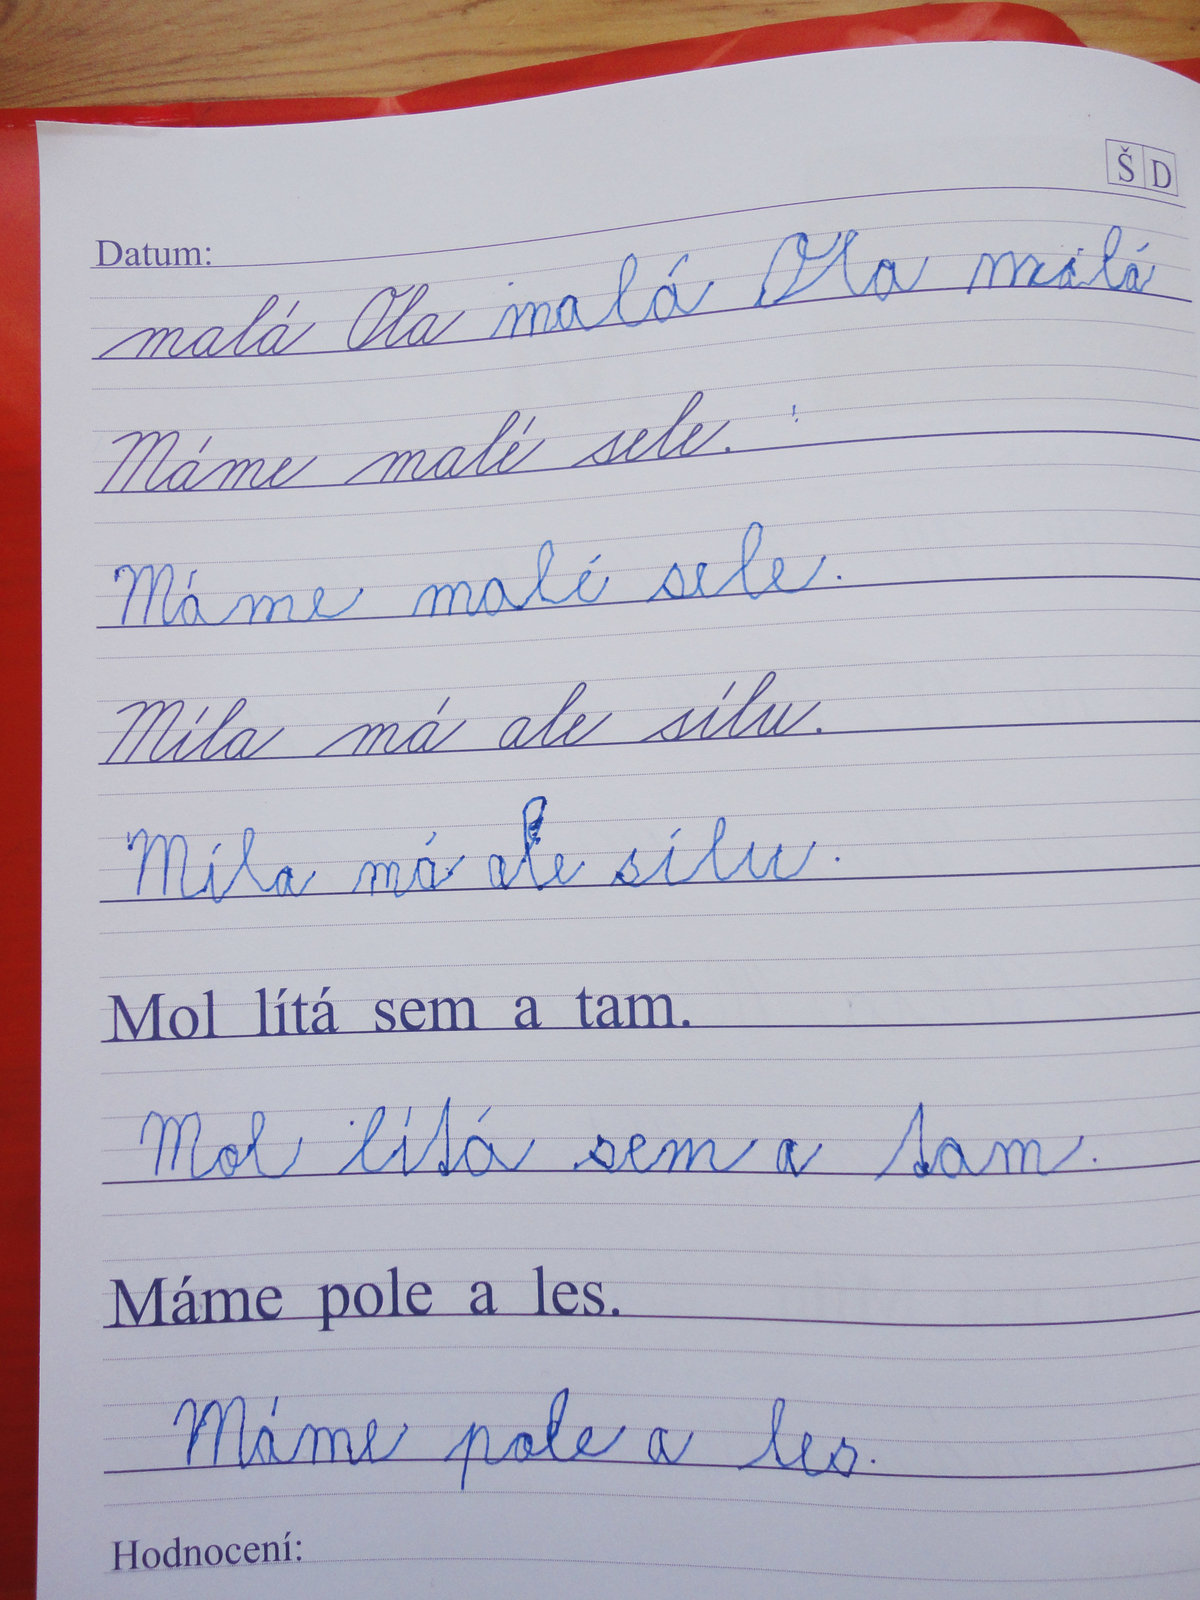 Š D
Datum:
malá Ola malá Ola malá
Máme malé sele.
Máme malé sele.
Míla má ale sílu.
Míla má ale sílu.
Mol lítá sem a tam.
Mol lítá sem a tam.
Máme pole a les.
Máme pole a les.
Hodnocení: